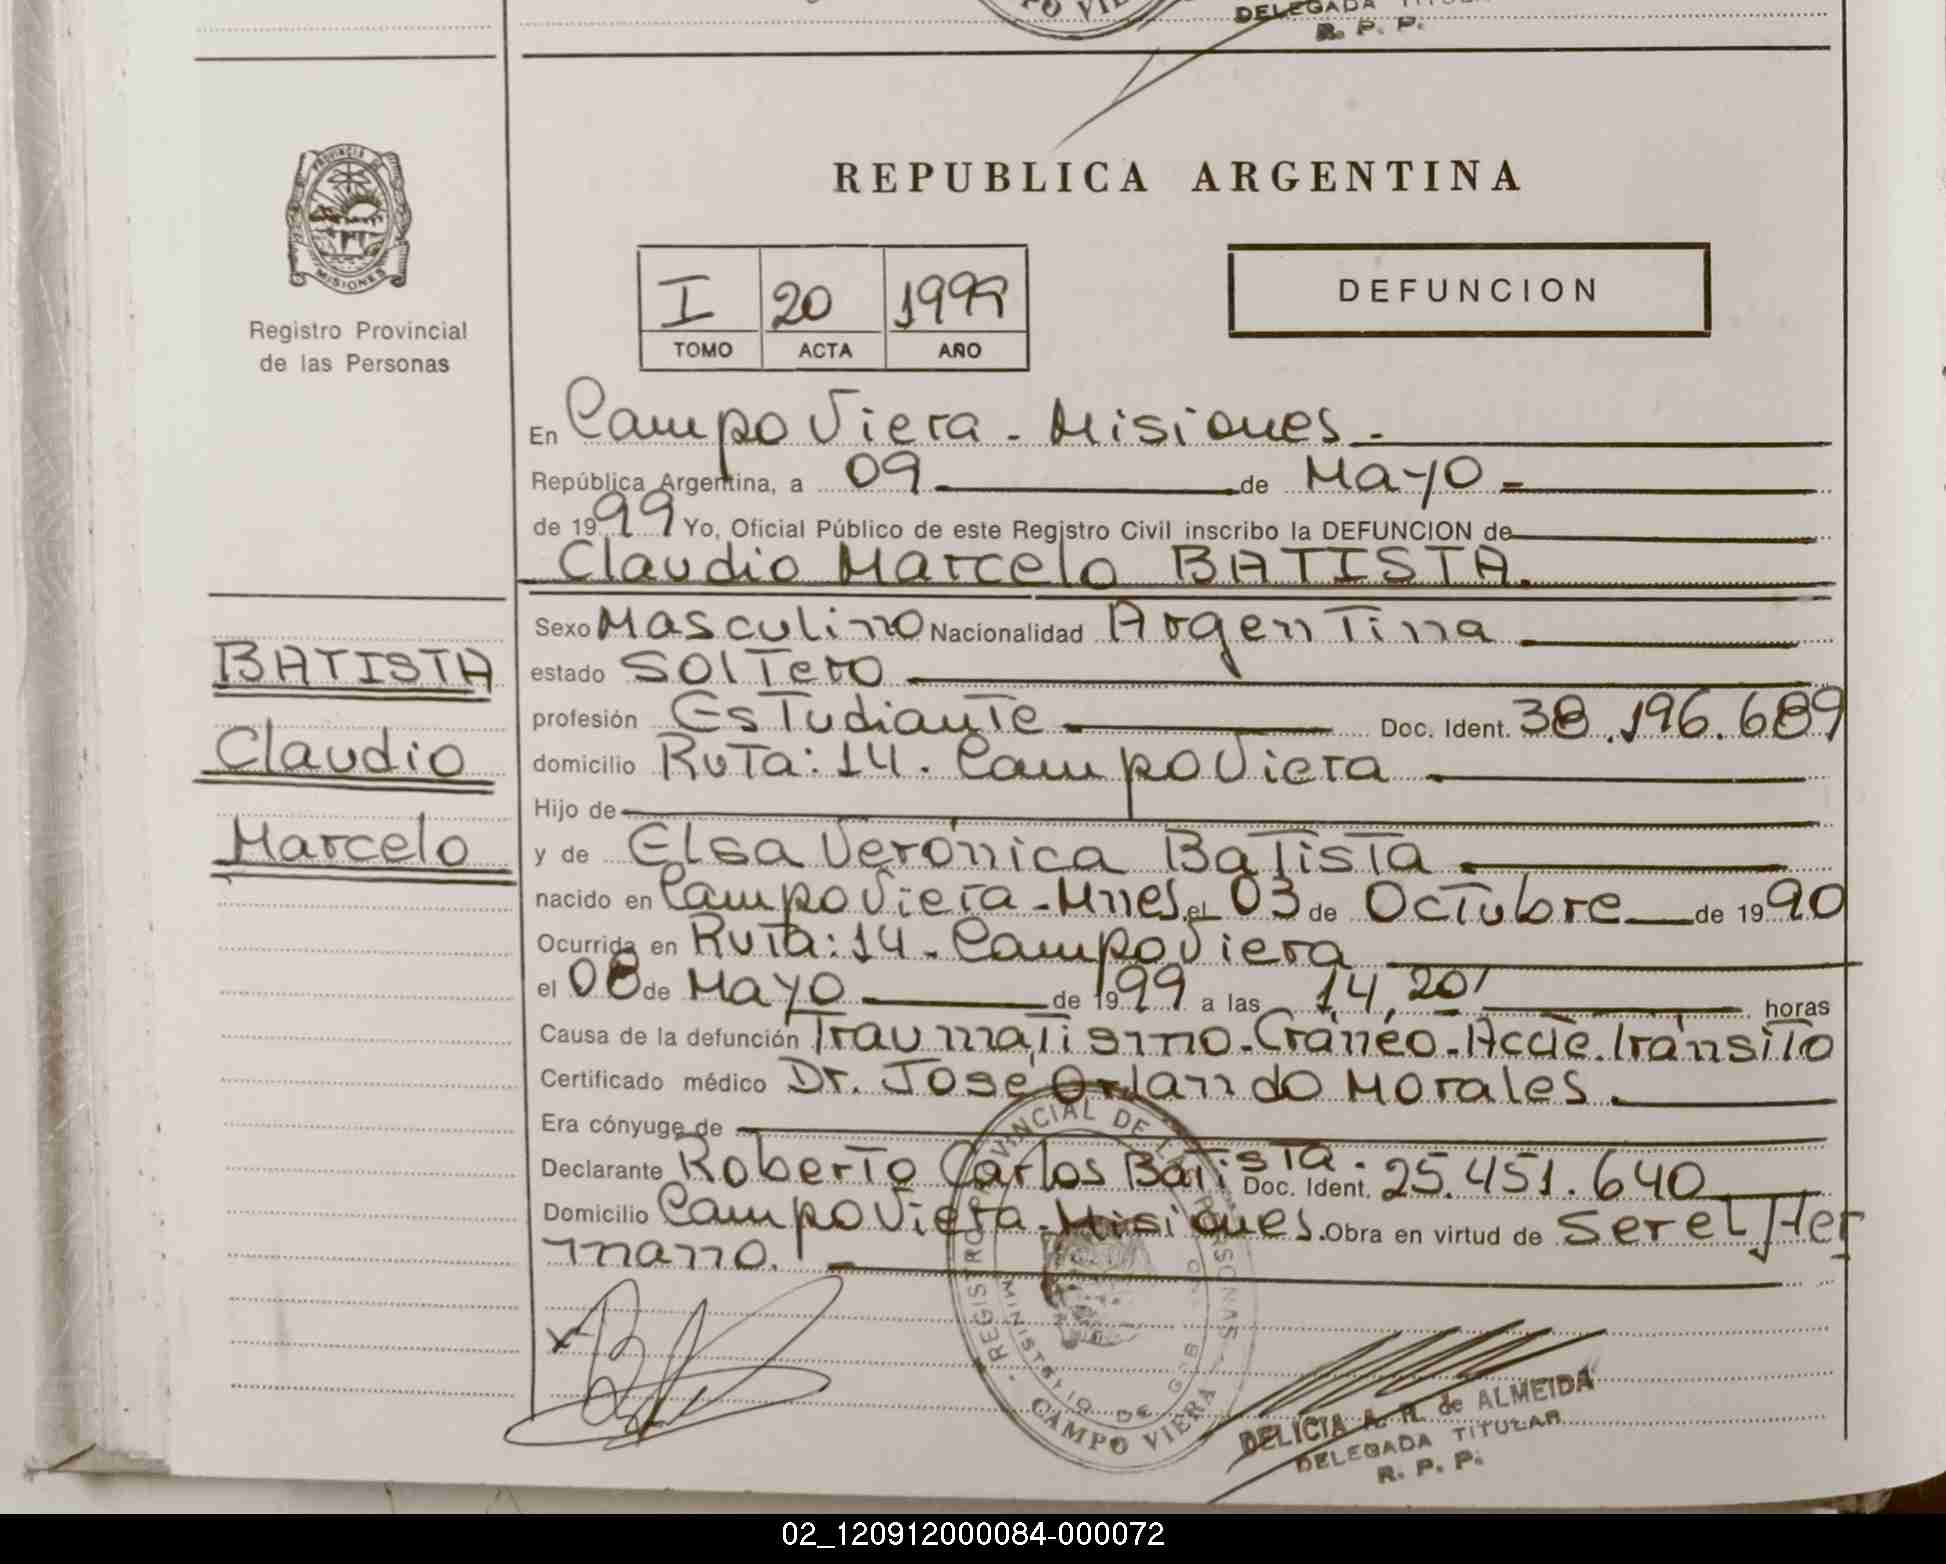 DELEGADA TITULAR
R. P. P.
PROVINCIA DE
MISIONES
Registro Provincial
de las Personas
REPUBLICA ARGENTINA
I 20 1999
TOMO ACTA AÑO
DEFUNCION
En Campo Viera - Misiones.-
República Argentina, a 09 de Mayo -
de 1999 Yo, Oficial Público de este Registro Civil inscribo la DEFUNCION de
Claudio Marcelo BATISTA.
BATISTA
Claudio
Marcelo
Sexo Masculino Nacionalidad Argentina
estado Soltero
profesión Estudiante Doc. Ident. 38.196.689
domicilio Ruta: 14. Campo Viera
Hijo de
y de Elsa Verónica Batista
nacido en Campo Viera - Mnes, el 03 de Octubre de 1990
Ocurrida en Ruta: 14 - Campo Viera
el 08 de Mayo de 1999 a las 14,20' horas
Causa de la defunción Traumatismo - Cráneo - Accte. Tránsito
Certificado médico Dr. José Orlando Morales.
Era cónyuge de
Declarante Roberto Carlos Batista. Doc. Ident. 25.451.640
Domicilio Campo Viera - Misiones. Obra en virtud de ser el Her
mano.
REGISTRO PROVINCIAL DE LAS PERSONAS
MINISTERIO DE GOB
CAMPO VIERA
DELICIA A. R. de ALMEIDA
DELEGADA TITULAR
R. P. P.
02_120912000084-000072